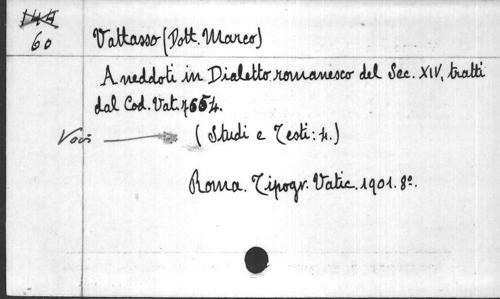 60
Vattasso (Dott. Marco)
Aneddoti in Dialetto romanesco del Sec. XIV, tratti
dal Cod. Vat. 7654.
(Studi e Testi: 4.)
Roma. Tipogr. Vatic. 1901. 8º.